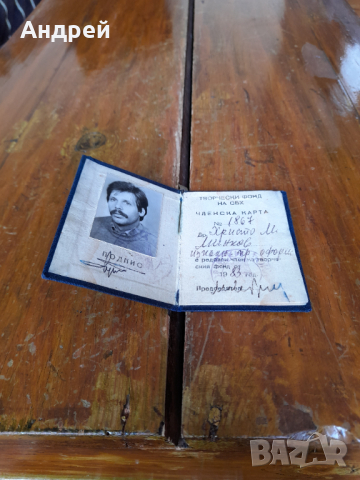 Андрей
ТВОРЧЕСКИ ФОНД
НА СБХ
ЧЛЕНСКА КАРТА
№ 1867
на Христо М.
Минков
е редовен член на творче-
ския фонд
19 83 год.
Председател:
ПОДПИС
BAZAR